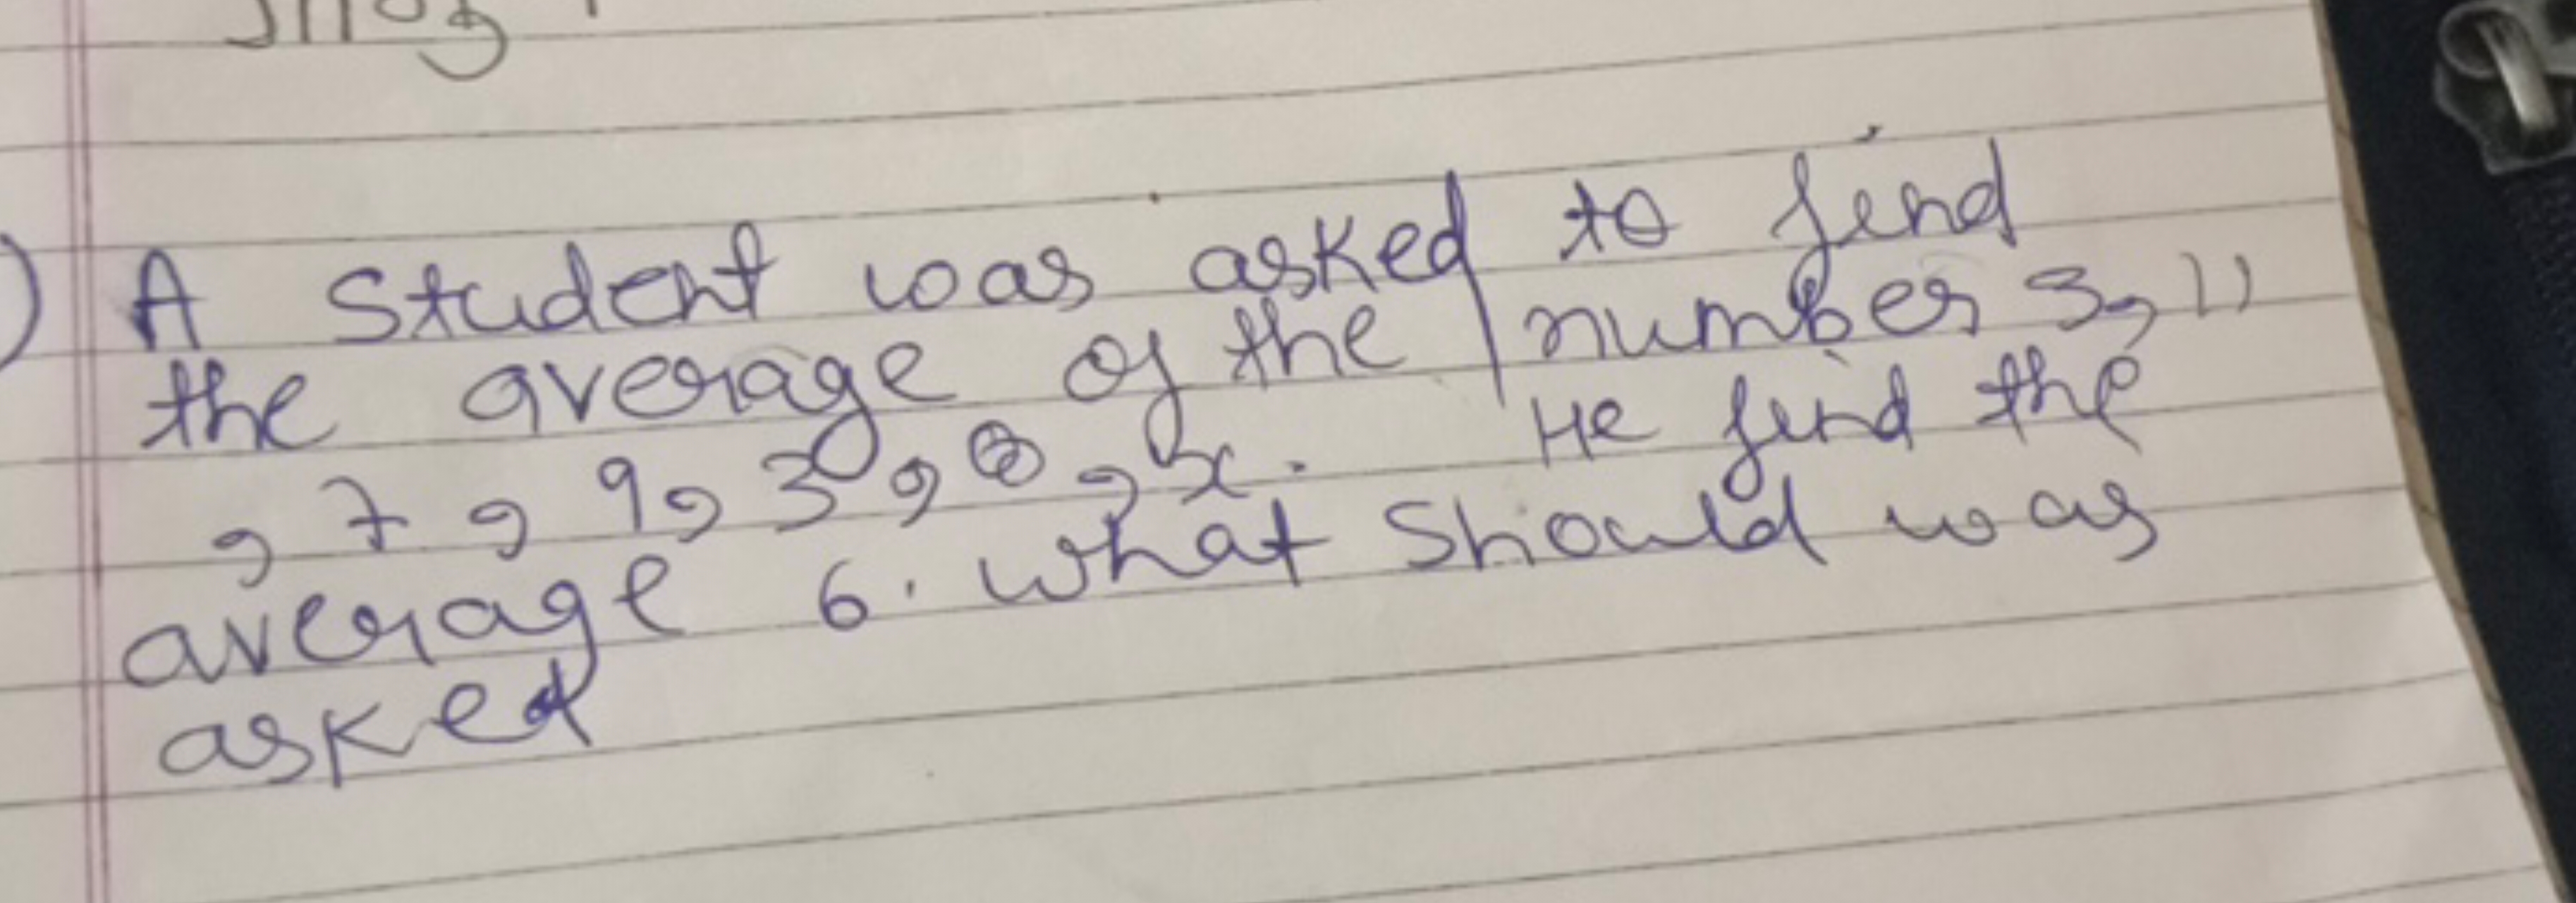 A student was asked to find
the average of the number 3, 11
, 7, 9, 3, 8, x. He find the
average 6. What should was
asked